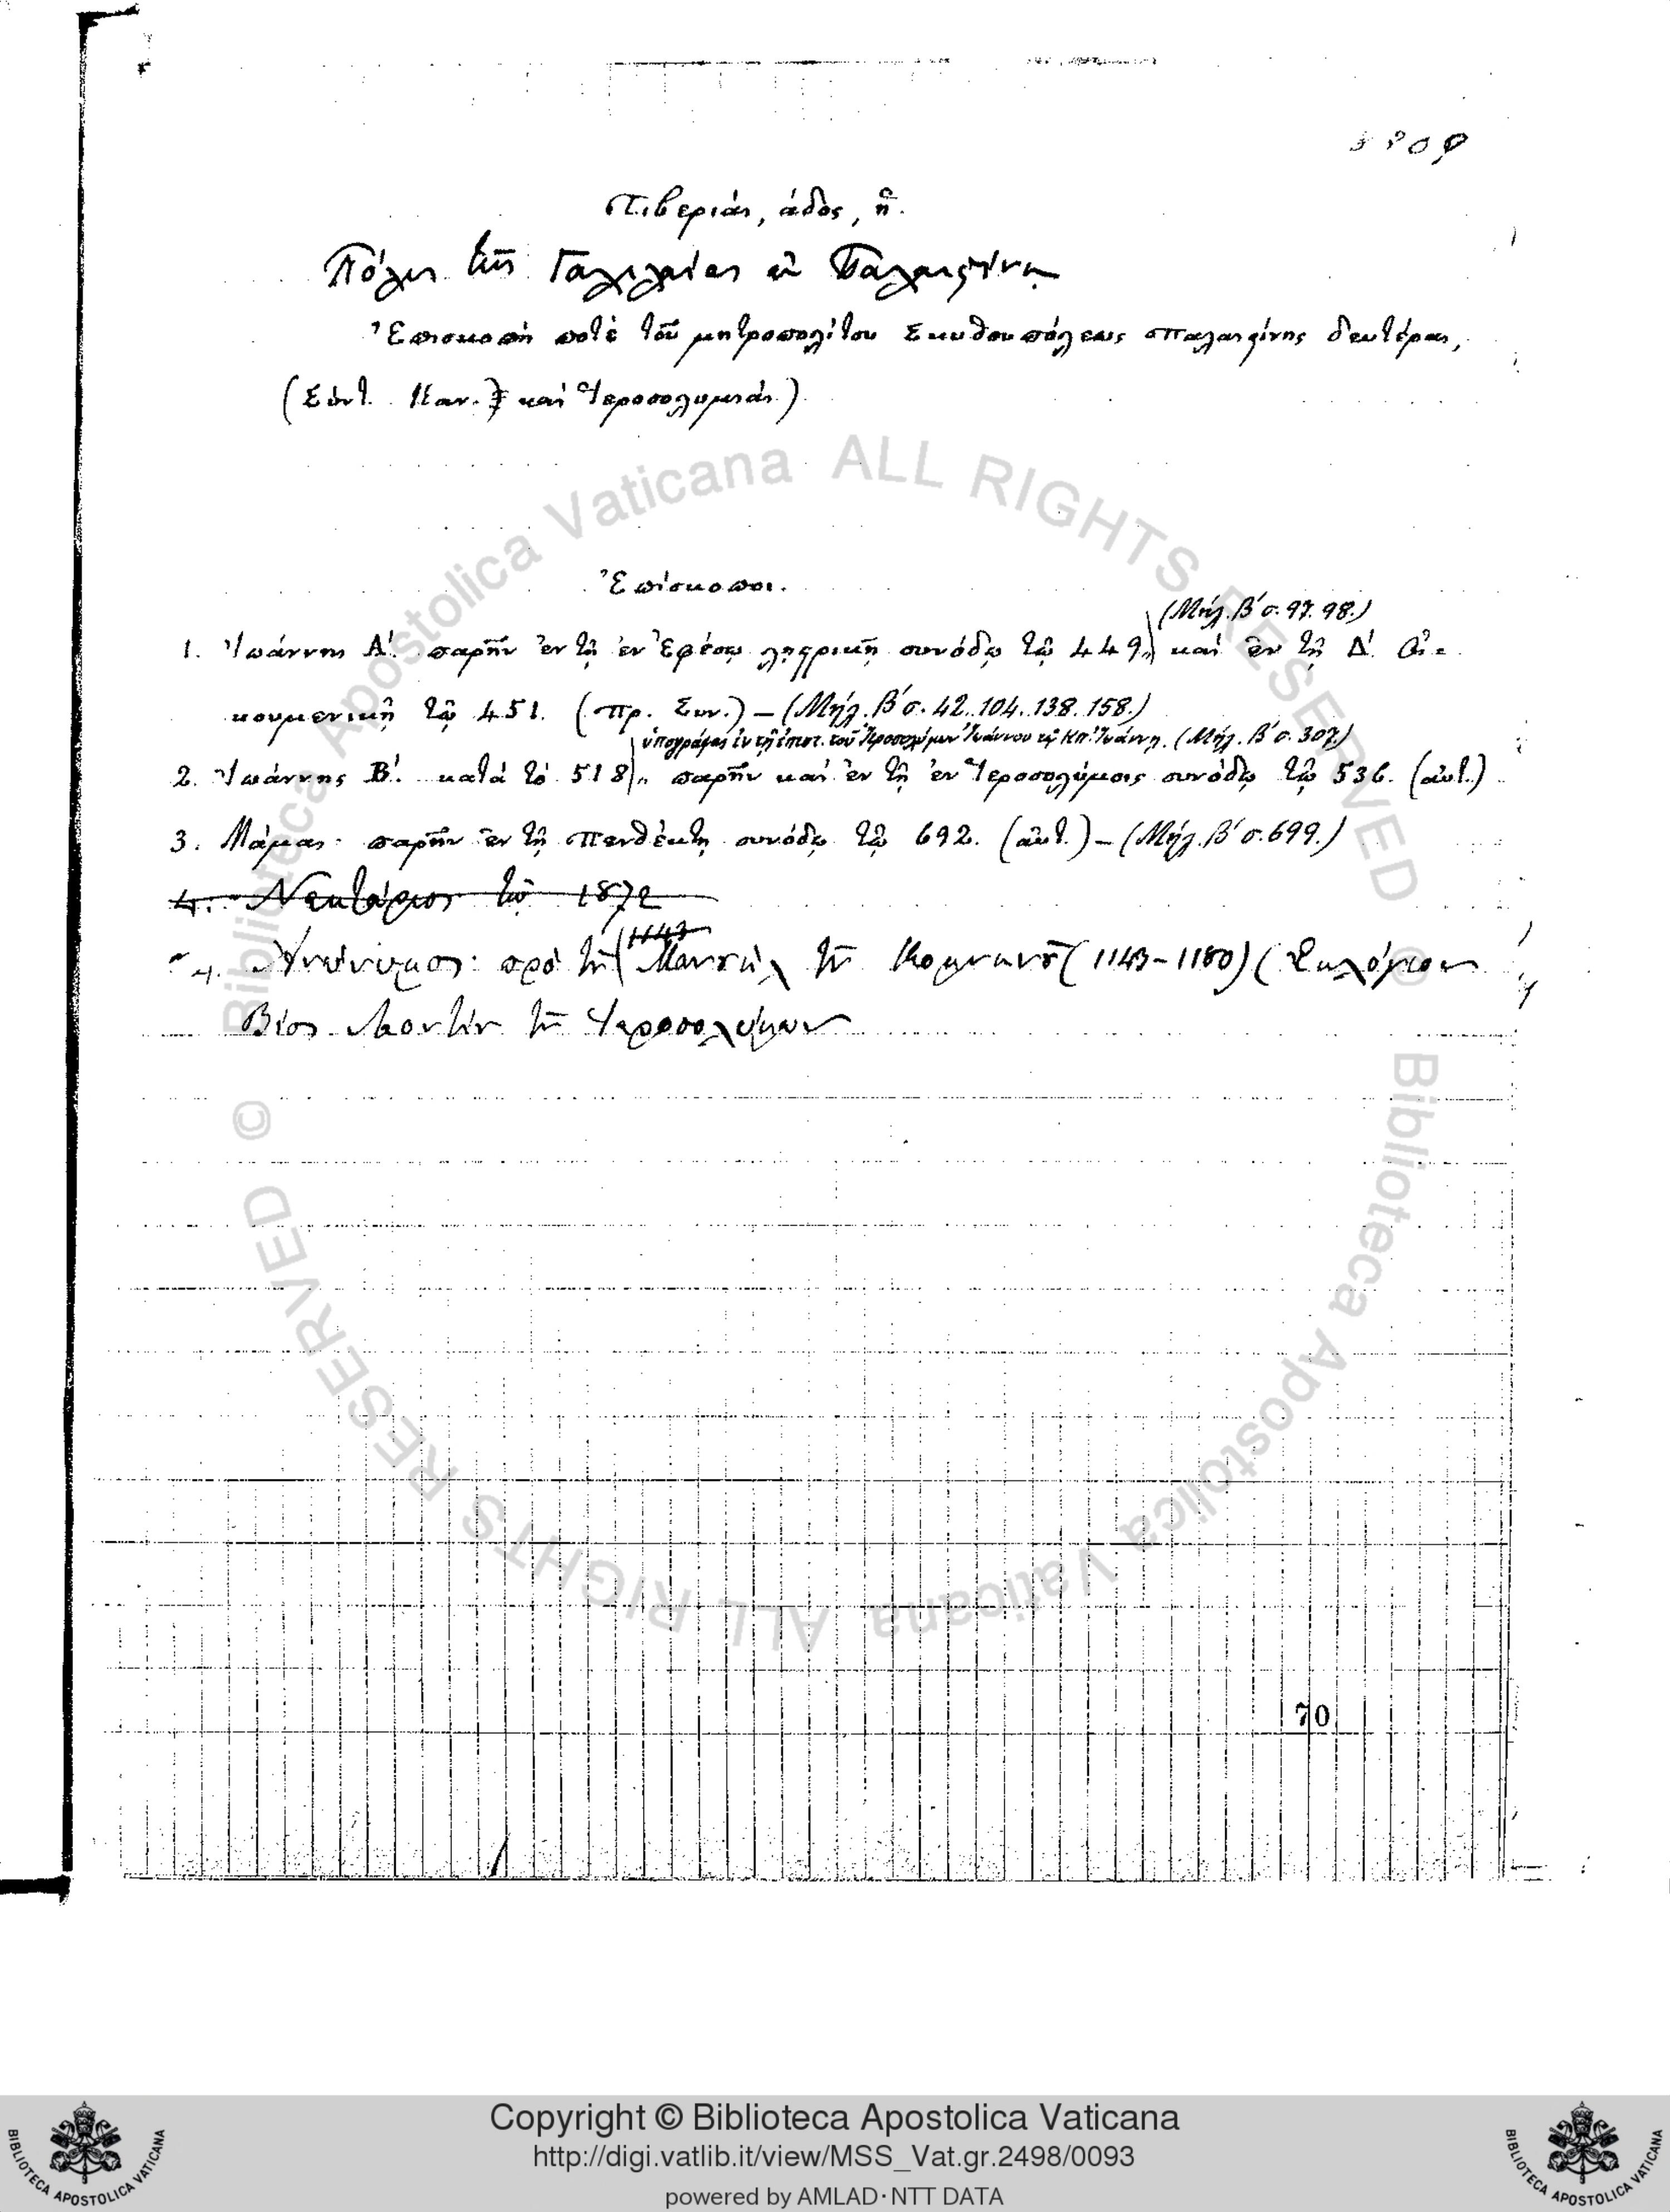 Τιβεριάς, άδος, ἡ.
Πόλις τῆς Γαλιλαίας ἐν Παλαιστίνῃ
Ἐπισκοπὴ ποτὲ τοῦ μητροπολίτου Σκυθουπόλεως Παλαιστίνης δευτέρας,
(Σύντ. Καν. καὶ Ἱεροσολυμιάς.)
Ἐπίσκοποι.
(Μήλ. Β´ σ. 97. 98.)
1. Ἰωάννης Α´. παρῆν ἐν τῇ ἐν Ἐφέσῳ λῃστρικῇ συνόδῳ τῷ 449, καὶ ἐν τῇ Δ´. Οἰ-
κουμενικῇ τῷ 451. (Πρ. Συν.) – (Μήλ. Β´ σ. 42. 104. 138. 158.)
ὑπογράψας ἐν τῇ ἐπιστ. τοῦ Ἱεροσολύμων Ἰωάννου τῷ Κπ. Ἰωάννῃ. (Μήλ. Β´ σ. 307.)
2. Ἰωάννης Β´. κατὰ τὸ 518, παρῆν καὶ ἐν τῇ ἐν Ἱεροσολύμοις συνόδῳ τῷ 536. (αὐτ.)
3. Μάμας παρῆν ἐν τῇ Πενθέκτῃ συνόδῳ τῷ 692. (αὐτ.) – (Μήλ. Β´ σ. 699.)
4. Νεκτάριος τῷ 1872
1143
4. Ἀνώνυμος πρὸ τοῦ Μανουὴλ τοῦ Κομνηνοῦ (1143-1180) (Εὐλόγιον
Βίος Λεοντίου τοῦ Ἱεροσολύμων
70
© Biblioteca Apostolica Vaticana ALL RIGHTS RESERVED
© Biblioteca Apostolica Vaticana ALL RIGHTS RESERVED
BIBLIOTECA APOSTOLICA VATICANA
Copyright © Biblioteca Apostolica Vaticana
http://digi.vatlib.it/view/MSS_Vat.gr.2498/0093
powered by AMLAD·NTT DATA
BIBLIOTECA APOSTOLICA VATICANA